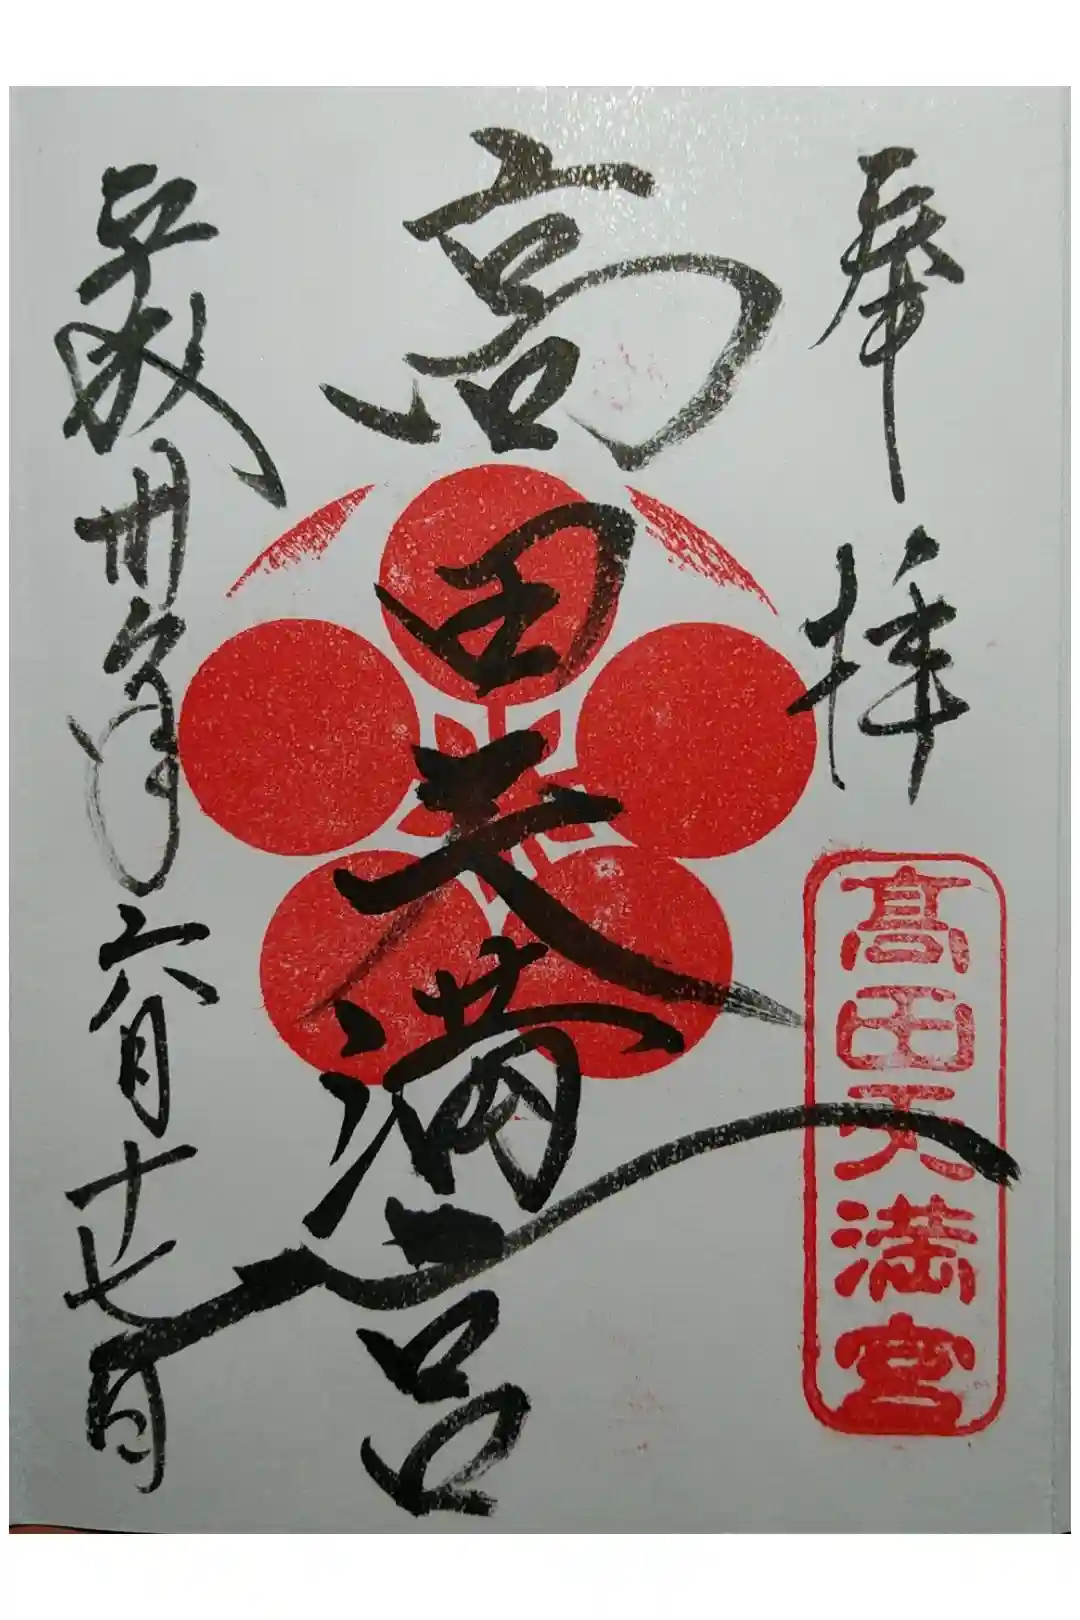 奉拝
髙田天満宮
高田天満宮
平成卅年六月十七日